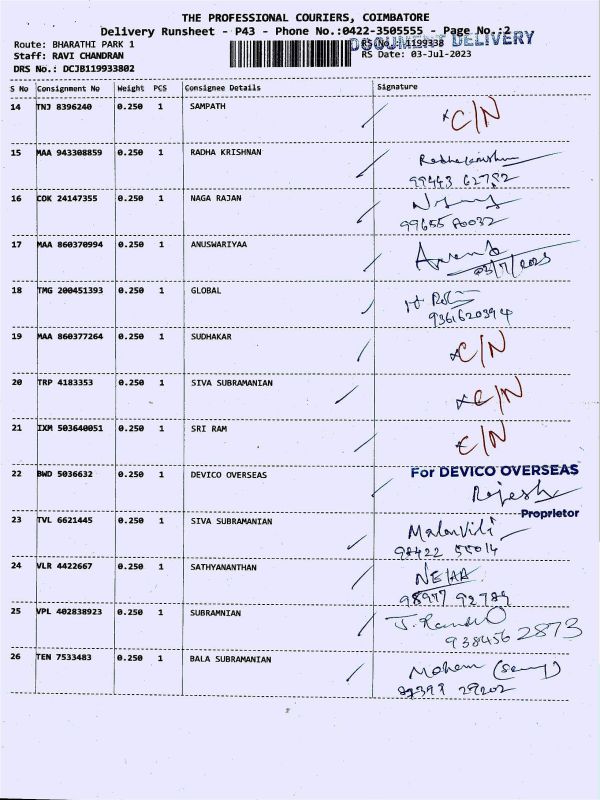 THE PROFESSIONAL COURIERS, COIMBATORE
Delivery Runsheet - P43 - Phone No.:0422-3505555 - Page No.:2
DOCUMENT DELIVERY
Route: BHARATHI PARK 1
RS No.: 1199338
Staff: RAVI CHANDRAN
RS Date: 03-Jul-2023
DRS No.: DCJB119933802
S No Consignment No Weight PCS Consignee Details Signature
14 TNJ 8396240 0.250 1 SAMPATH C/N
15 MAA 943308859 0.250 1 RADHA KRISHNAN Radhakrishnan
99443 62792
16 COK 24147355 0.250 1 NAGA RAJAN
99655 80032
17 MAA 860370994 0.250 1 ANUSWARIYAA
03/7/2023
18 TMG 200451393 0.250 1 GLOBAL
9361620394
19 MAA 860377264 0.250 1 SUDHAKAR C/N
20 TRP 4183353 0.250 1 SIVA SUBRAMANIAN C/N
21 IXM 503640051 0.250 1 SRI RAM C/N
22 BWD 5036632 0.250 1 DEVICO OVERSEAS For DEVICO OVERSEAS
Rajesh
Proprietor
23 TVL 6621445 0.250 1 SIVA SUBRAMANIAN Malarvili
98422 55014
24 VLR 4422667 0.250 1 SATHYANANTHAN
98977 92789
25 VPL 402838923 0.250 1 SUBRAMNIAN
938456 2873
26 TEN 7533483 0.250 1 BALA SUBRAMANIAN Mohan